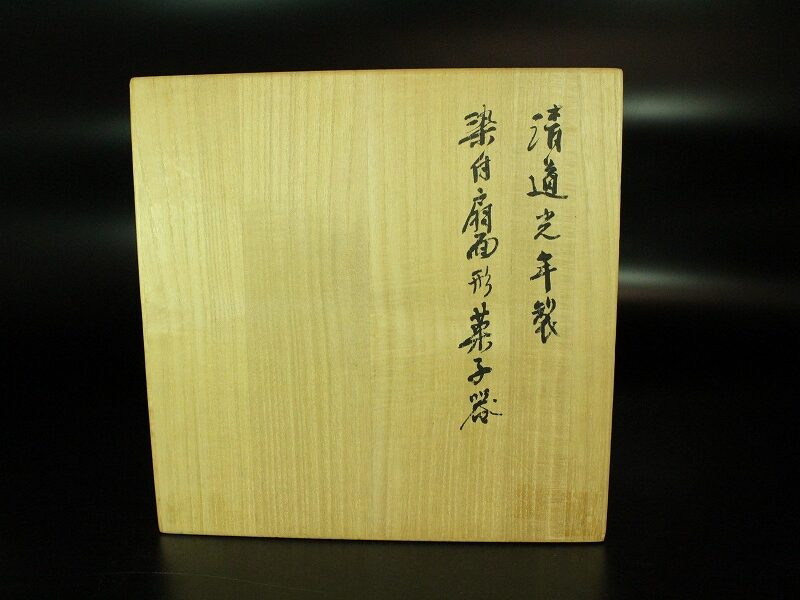 清道光年製
染付扇面形菓子器